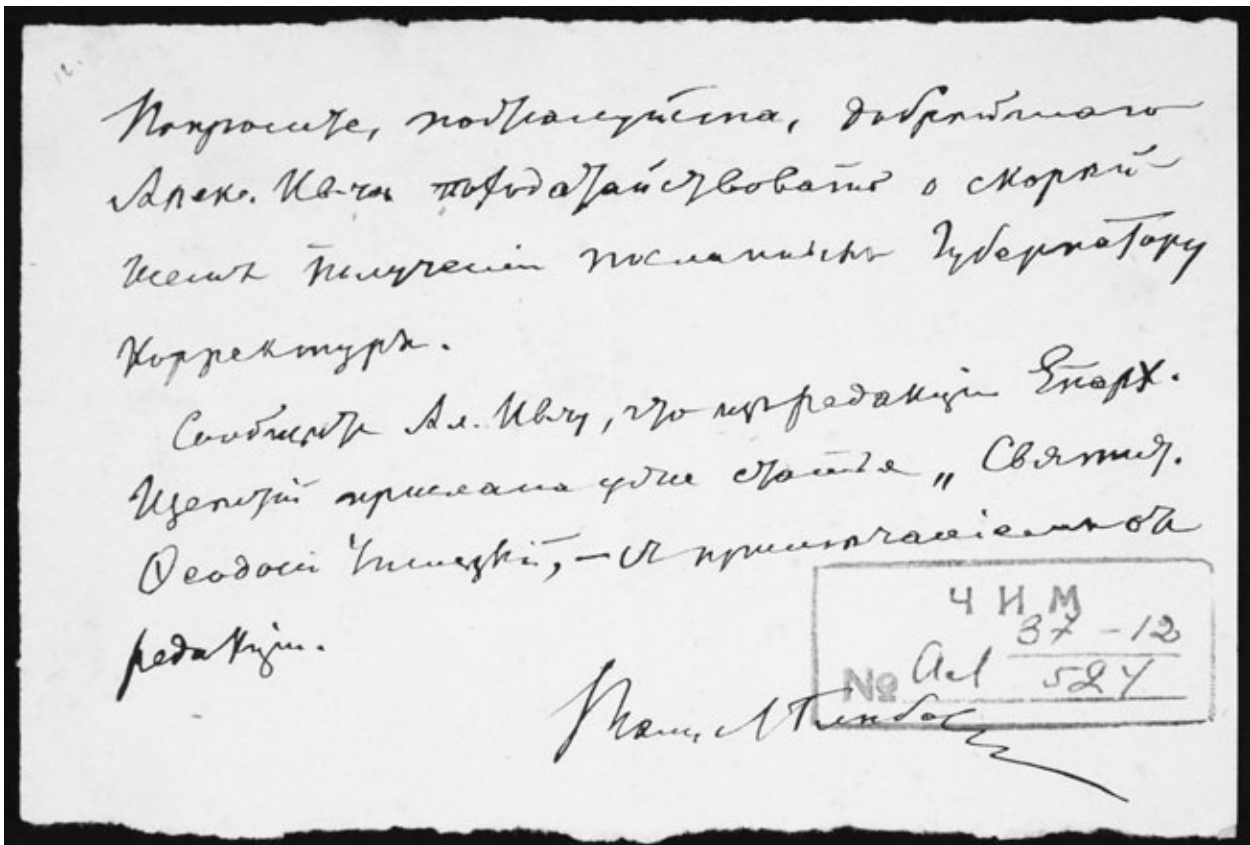 12.
Попросите, подталуйста, добрѣйшаго
Алек. Ив-ча походатайствовать о скорѣй-
шемъ полученіи посланныхъ Губернатору
корректуръ.
Сообщите Ал. Ивчу, что изъ редакціи Епарх.
прислана уже статья „Святит.
Ѳеодосій Углицкій", – съ примѣчаніемъ отъ
редакціи.
Ч И М
№ Ал 37-12
524